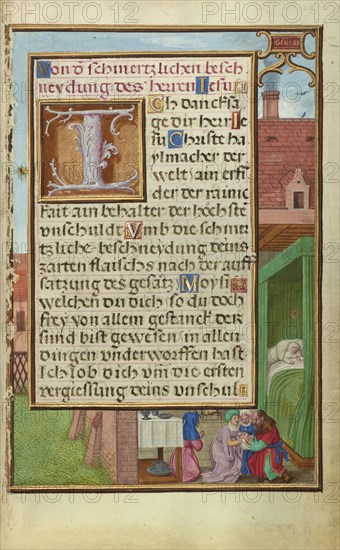 GENE·21
Von d̄ schmertzlichen besch
neydung des herren Jesu
Ich dancksa
ge dir herr Je
su Christe ha
ylmacher der
welt ain erff
der der rainic
kait ain behalter der höchstē
vnschuldt Vmb die schmer
tzliche beschneydung deins
zarten flaischs nach der auff
satzung des gesatz Moysi
welchen du dich so du doch
frey von allem gestanck der
sünd bist gewesen in allen
dingen vnderworffen hast
Ich lob dich vm̄ die ersten
vergiessung deins vnschul